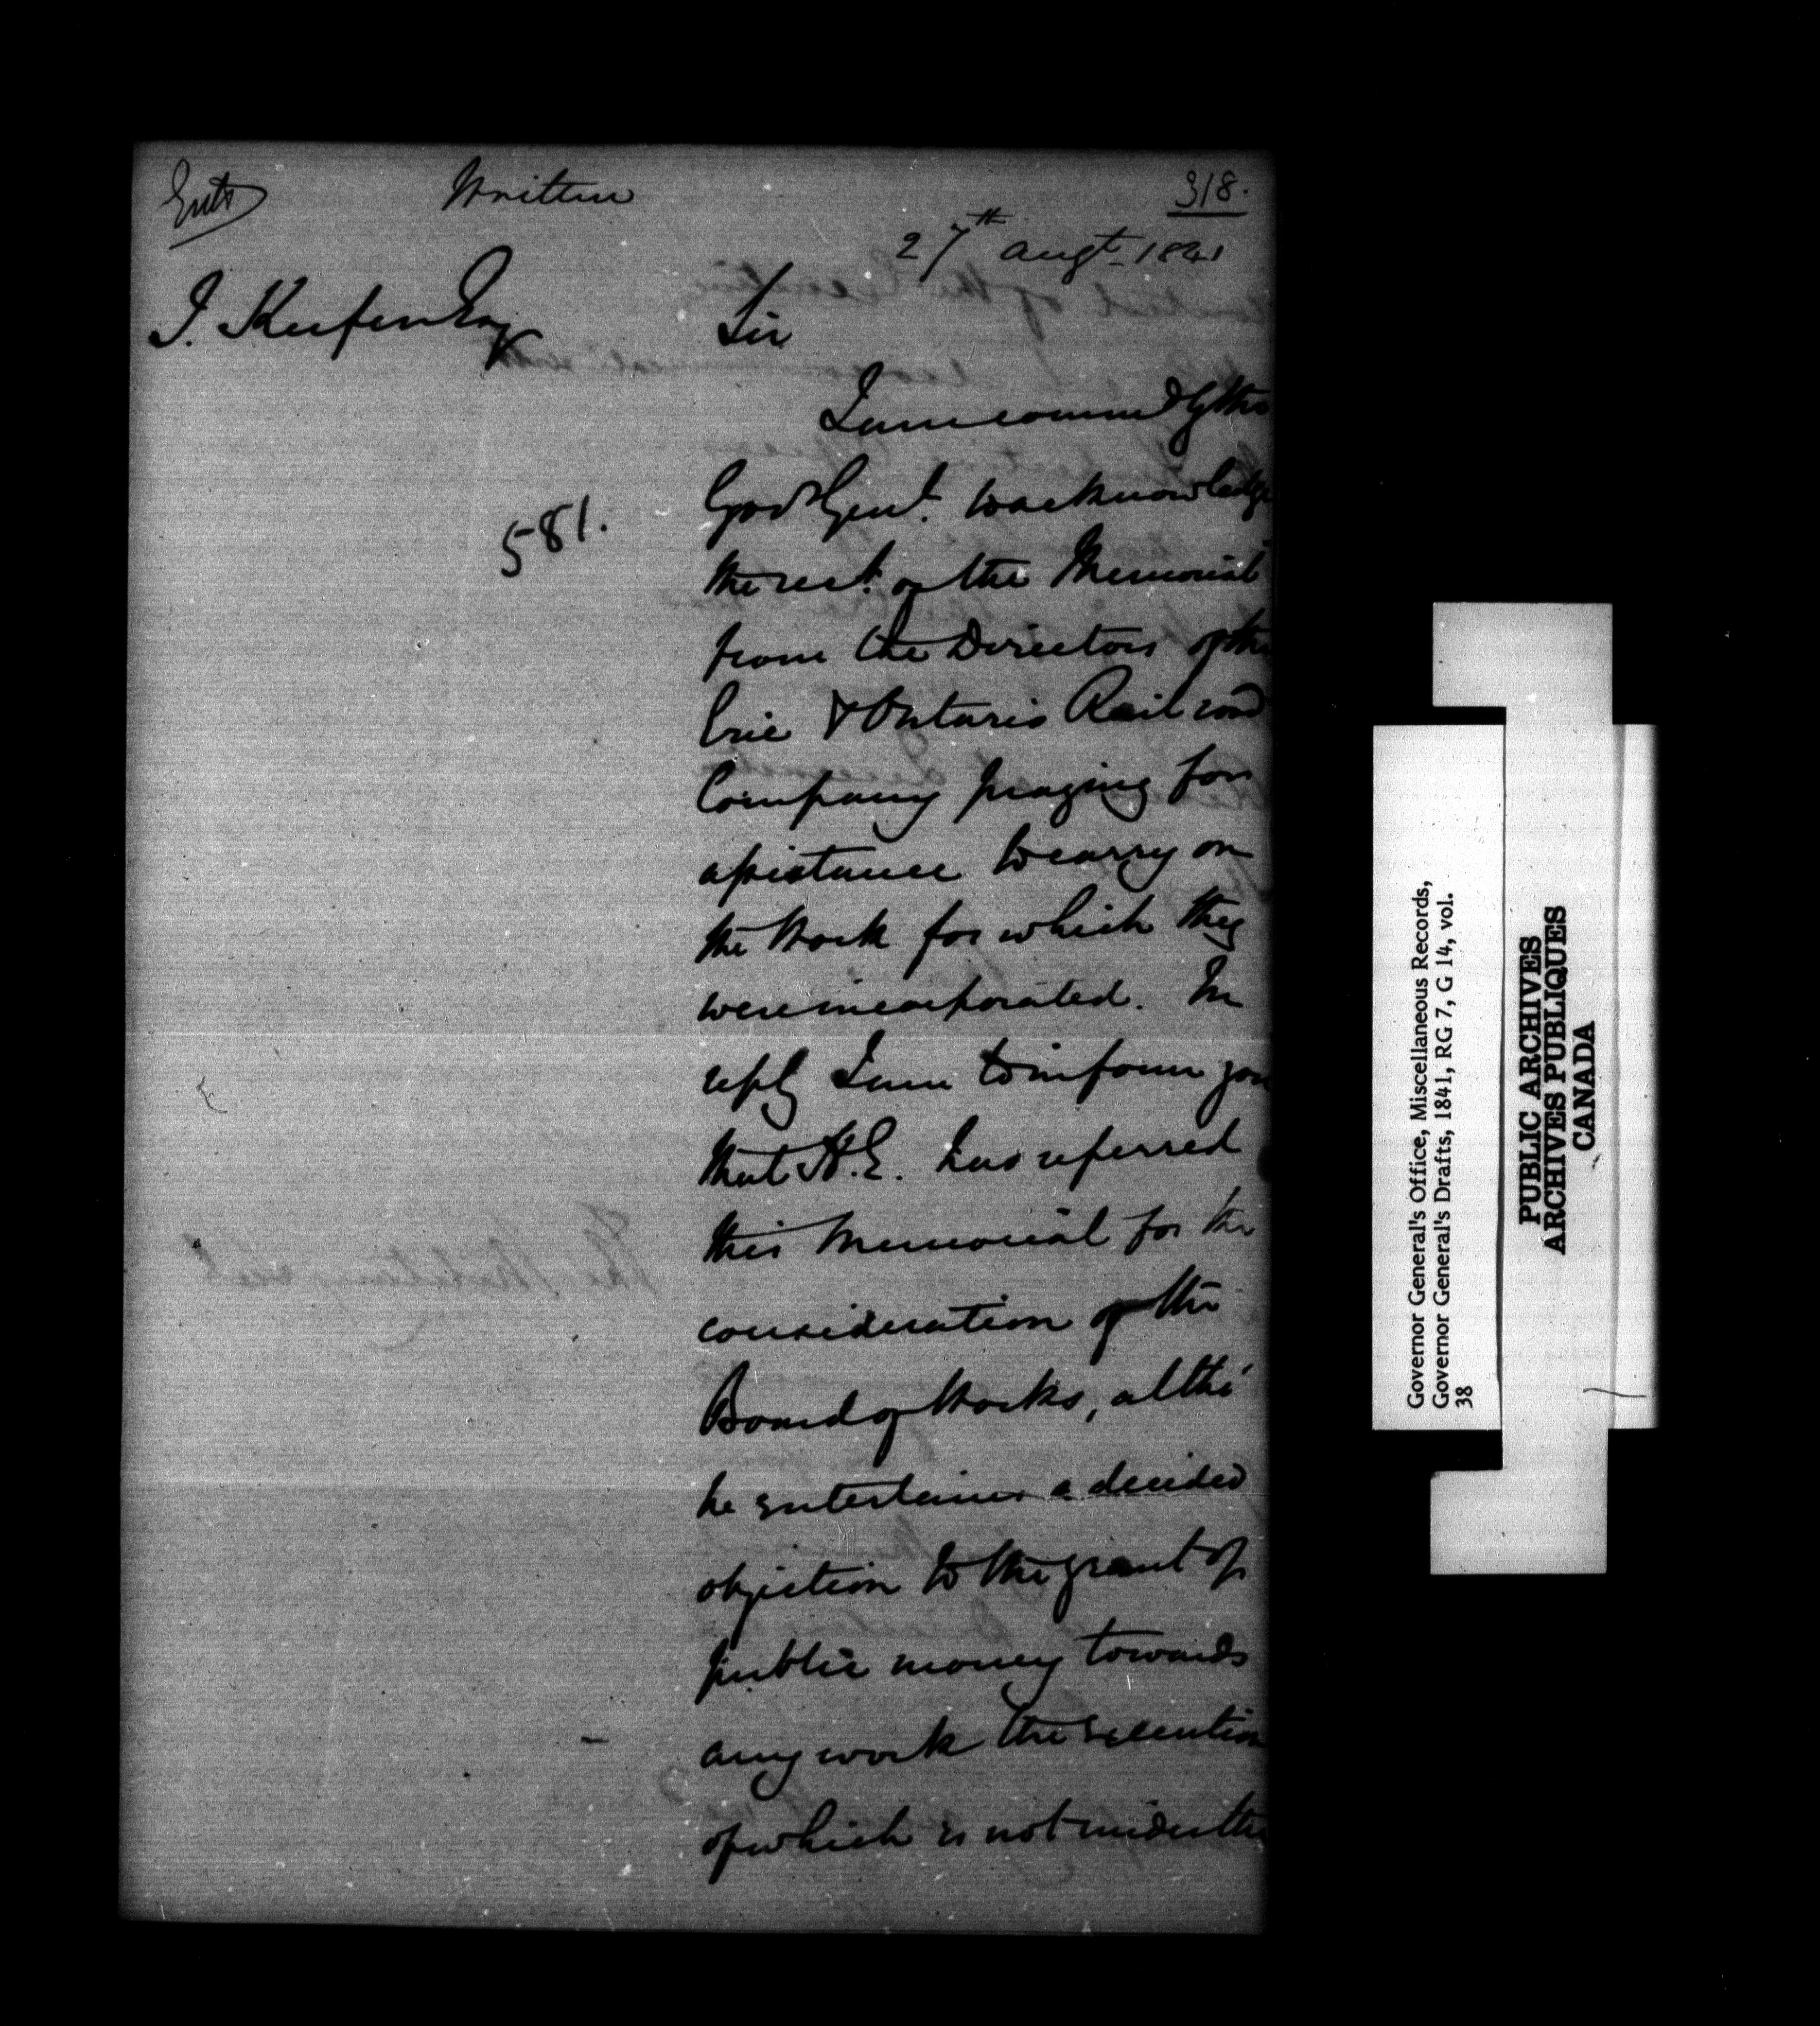 Entd
Written
318.
27th Augt 1841
J. Keefer Esq
Sir
I am commd by the
Govr Genl. to acknowledge
581.
the rect. of the Memorial
from the Directors of the
Erie & Ontario Rail road
Company praying for
assistance to carry on
the Work for which they
were incorporated. In
reply I am to inform you
that H.E. has referred
this Memorial for the
consideration of the
Board of Works, altho'
he entertains a decided
objection to the grant of
public money towards
any work the execution
of which is not under the
Governor General's Office, Miscellaneous Records,
Governor General's Drafts, 1841, RG 7, G 14, vol.
38
PUBLIC ARCHIVES
ARCHIVES PUBLIQUES
CANADA